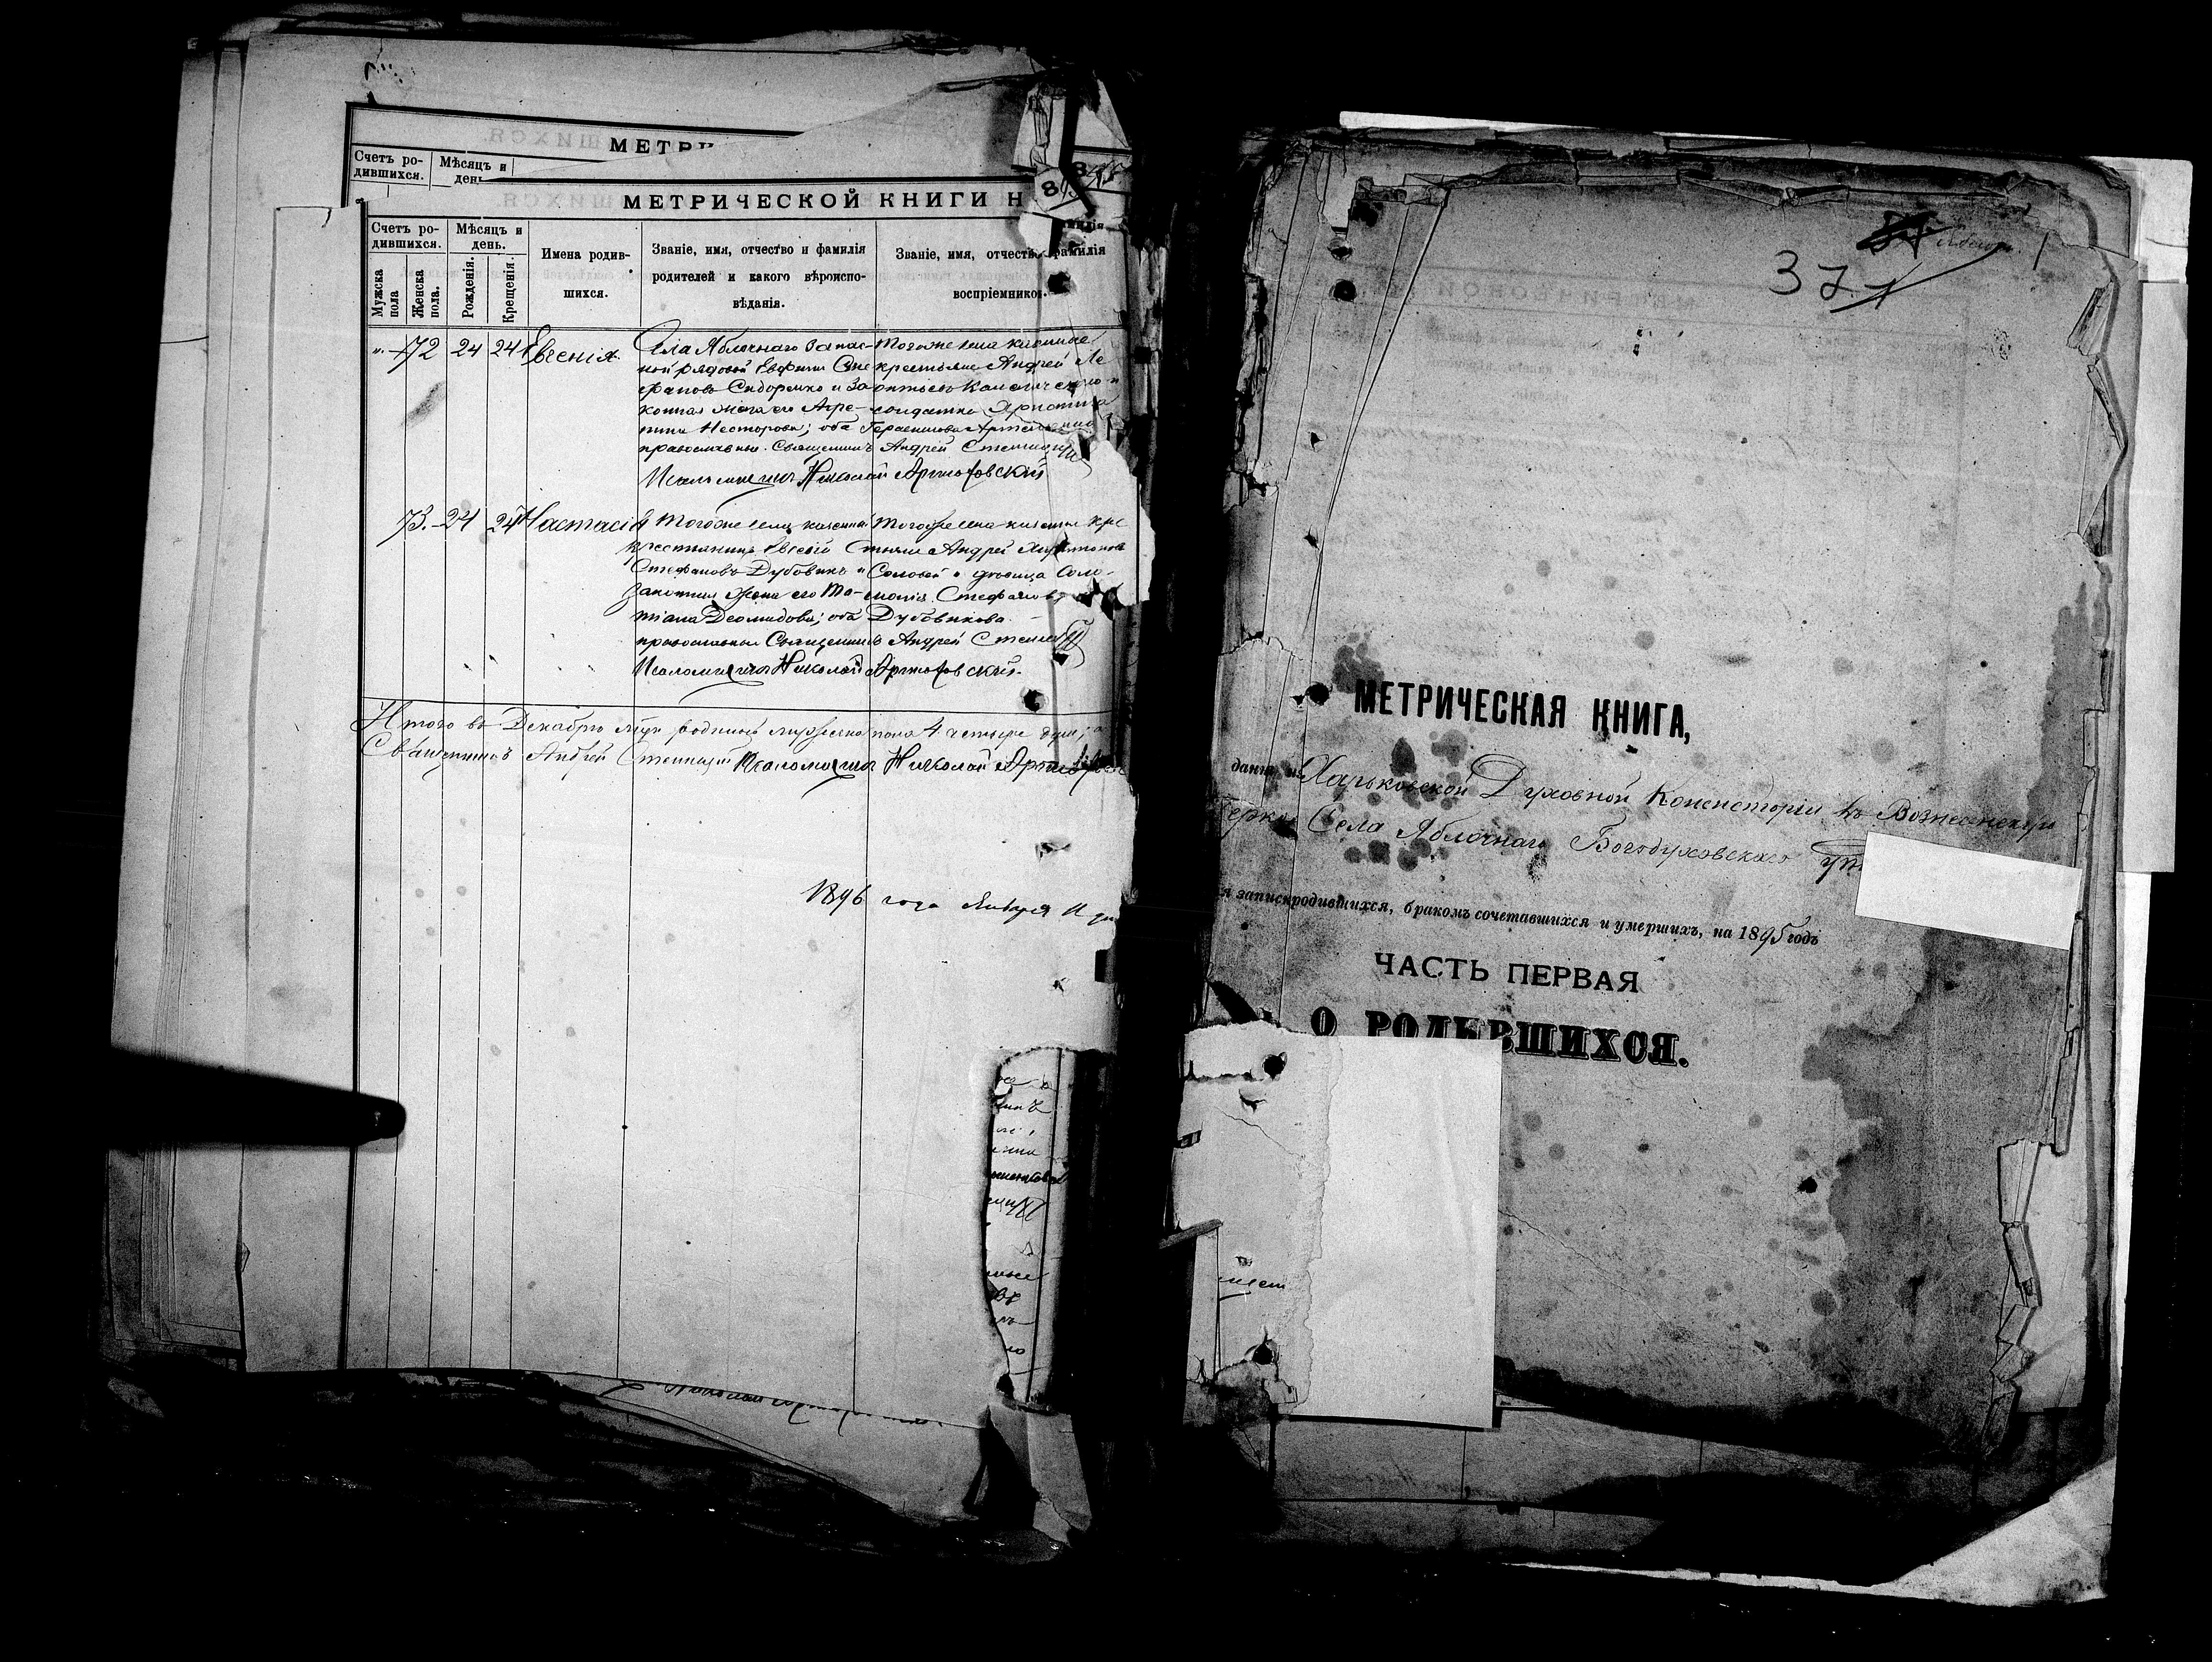 МЕТРИ
Счетъ ро-
дившихся.
Мѣсяцъ и
день
МЕТРИЧЕСКОЙ КНИГИ Н
8
Счетъ ро-
дившихся.
Мѣсяцъ и
день.
Мужска
пола
Женска
пола.
Рожденія.
Крещенія.
Имена родив-
шихся.
Званіе, имя, отчество и фамилія
родителей и какого вѣроиспо-
вѣданія.
Званіе, имя, отчеств фамилія
воспріемников
72 24 24 Евгенія
Села Яблочнаго запас-
ной рядовой Евфимъ Сте-
фановъ Сидоренко и за-
конная жена его Агре-
пина Несторова; оба
православные.
Тогоже села казенные
крестьяне Андрей Ле-
онтьевъ
солдатка Христина
Герасимова
Священникъ Андрей
Псаломщикъ Николай Артюховский
73. 24 24 Настасія
Тогоже села казенный
крестьянинъ Евсей
Стефановъ Дубовикъ и
законная жена его Та-
тіана Деомидова; оба
православные
Тогоже села казенные кре
стьяне Андрей Харитоновъ
Соловей и девица Соло-
монія Стефанова
Дубовикова
Священникъ Андрей
Псаломщикъ Николай Артюховский.
Итого въ Декабрѣ м-цѣ родилось женска пола 4 четыре души,
Священникъ Андрей Псаломщикъ Николай
1896 года Января 11 дня
371
МЕТРИЧЕСКАЯ КНИГА,
данная изъ Харьковской Духовной Консисторіи въ Вознесенскую
Церковь Села Яблочнаго Богодуховскаго
я записи родившихся, бракомъ сочетавшихся и умершихъ, на 1895 годъ
ЧАСТЬ ПЕРВАЯ
О РОДИВШИХСЯ.